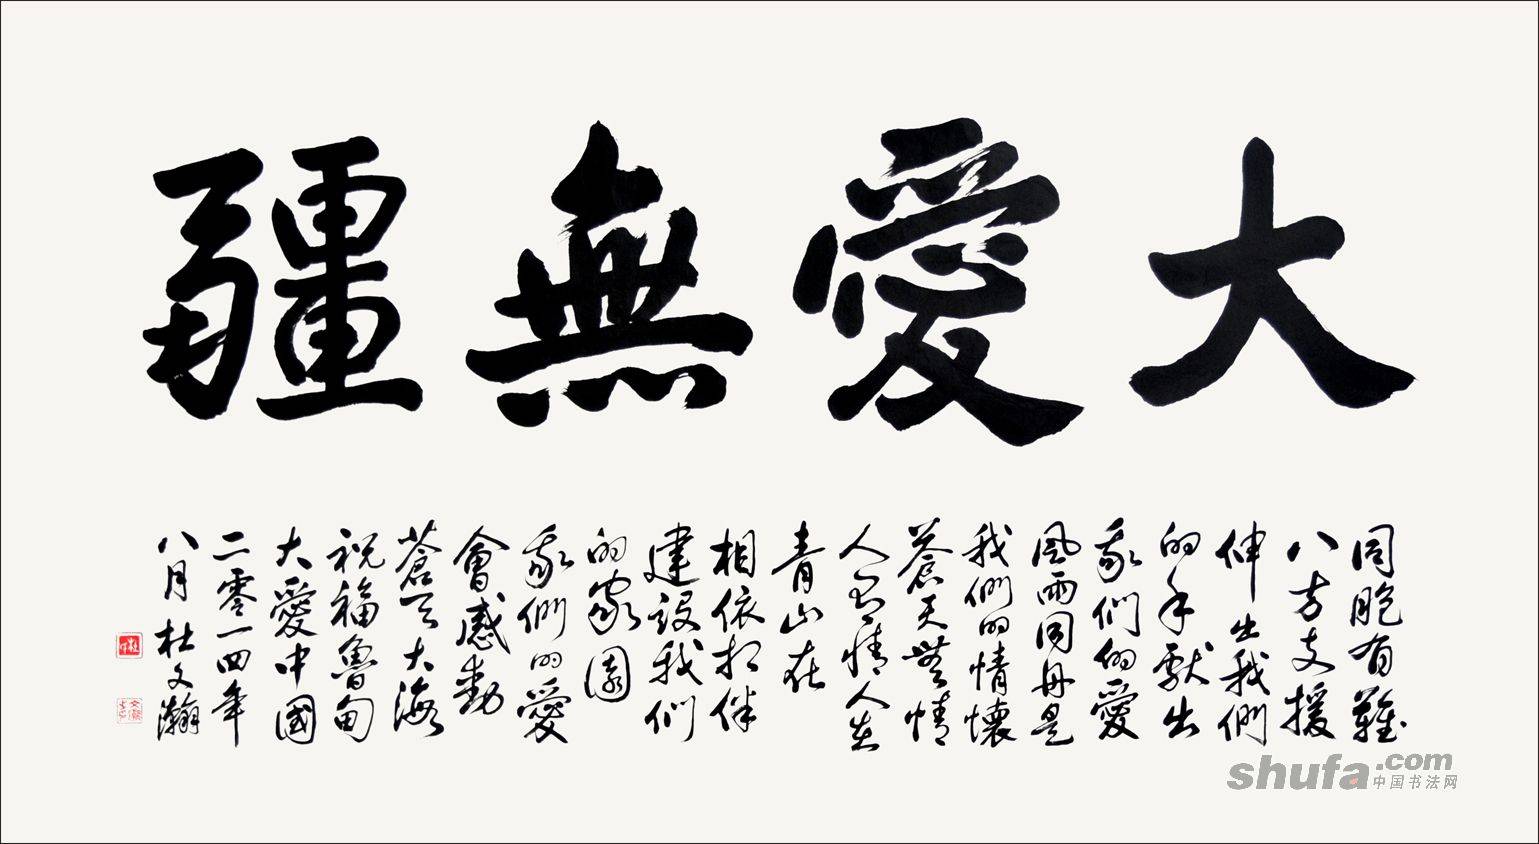 大愛無疆
同胞有難
八方支援
伸出我們
的手獻出
我們的愛
風雨同舟是
我們的情懷
蒼天無情
人有情人在
青山在
相依相伴
建設我們
的家園
我們的愛
會感動
蒼天大海
祝福魯甸
大愛中國
二零一四年
八月杜文瀚
shufa.com
中国书法网